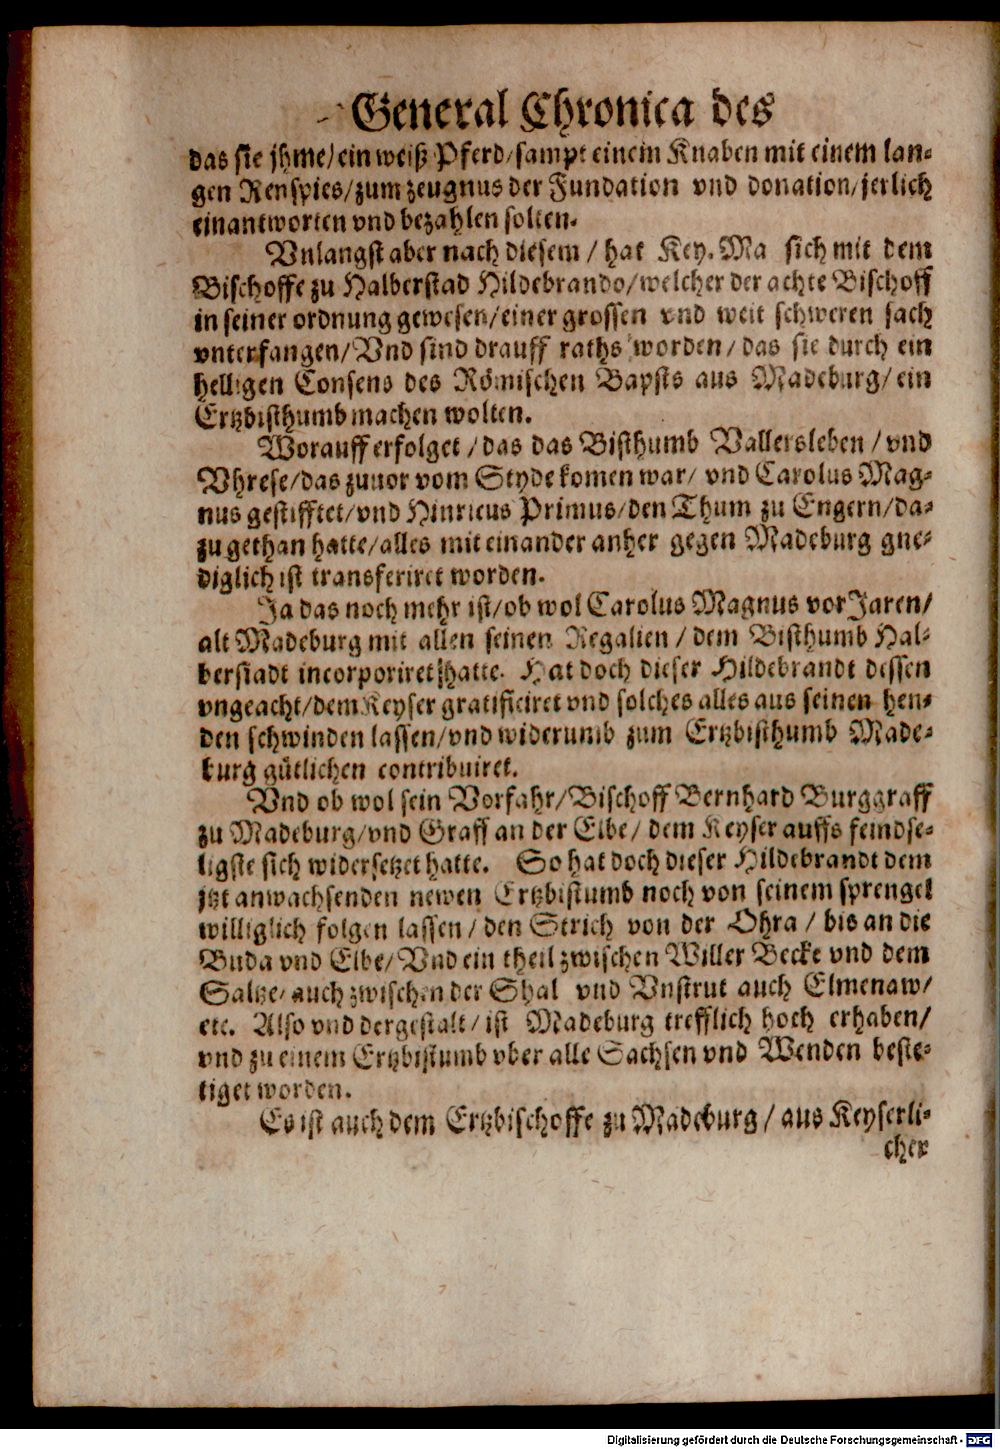 General Chronica des
das sie jhme/ ein weiß Pferd/ sampt einem Knaben mit einem lan-
gen Renspies/ zum zeugnus der Fundation vnd donation/ jerlich
einantworten vnd bezahlen solten.
Vnlangst aber nach diesem / hat Key. Ma sich mit dem
Bischoffe zu Halberstad Hildebrando/ welcher der achte Bischoff
in seiner ordnung gewesen/ einer grossen vnd weit schweren sach
vnterfangen/ Vnd sind drauff raths worden/ das sie durch ein
helligen Consens des Römischen Bapsts aus Madeburg/ ein
Ertzbisthumb machen wolten.
Worauff erfolget / das das Bisthumb Vallersleben / vnd
Vhrese/ das zuuor vom Styde komen war/ vnd Carolus Mag-
nus gestifftet/ vnd Hinricus Primus/ den Thum zu Engern/ da-
zu gethan hatte/ alles mit einander anher gegen Madeburg gne-
diglich ist transferiret worden.
Ja das noch mehr ist/ ob wol Carolus Magnus vor Jaren/
alt Madeburg mit allen seinen Regalien / dem Bisthumb Hal-
berstadt incorporiret hatte. Hat doch dieser Hildebrandt dessen
vngeacht/ dem Keyser gratificiret vnd solches alles aus seinen hen-
den schwinden lassen/ vnd widerumb zum Ertzbisthumb Made-
burg gütlichen contribuiret.
Vnd ob wol sein Vorfahr/ Bischoff Bernhard Burggraff
zu Madeburg/ vnd Graff an der Elbe/ dem Keyser auffs feindse-
ligste sich widersetzet hatte. So hat doch dieser Hildebrandt dem
jtzt anwachsenden newen Ertzbistumb noch von seinem sprengel
williglich folgen lassen/ den Strich von der Ohra / bis an die
Buda vnd Elbe/ Vnd ein theil zwischen Willer Becke vnd dem
Saltze/ auch zwischen der Shal vnd Vnstrut auch Elmenaw/
etc. Also vnd dergestalt/ ist Madeburg trefflich hoch erhaben/
vnd zu einem Ertzbistumb vber alle Sachsen vnd Wenden beste-
tiget worden.
Es ist auch dem Ertzbischoffe zu Madeburg/ aus Keyserli-
cher
Digitalisierung gefördert durch die Deutsche Forschungsgemeinschaft - DFG